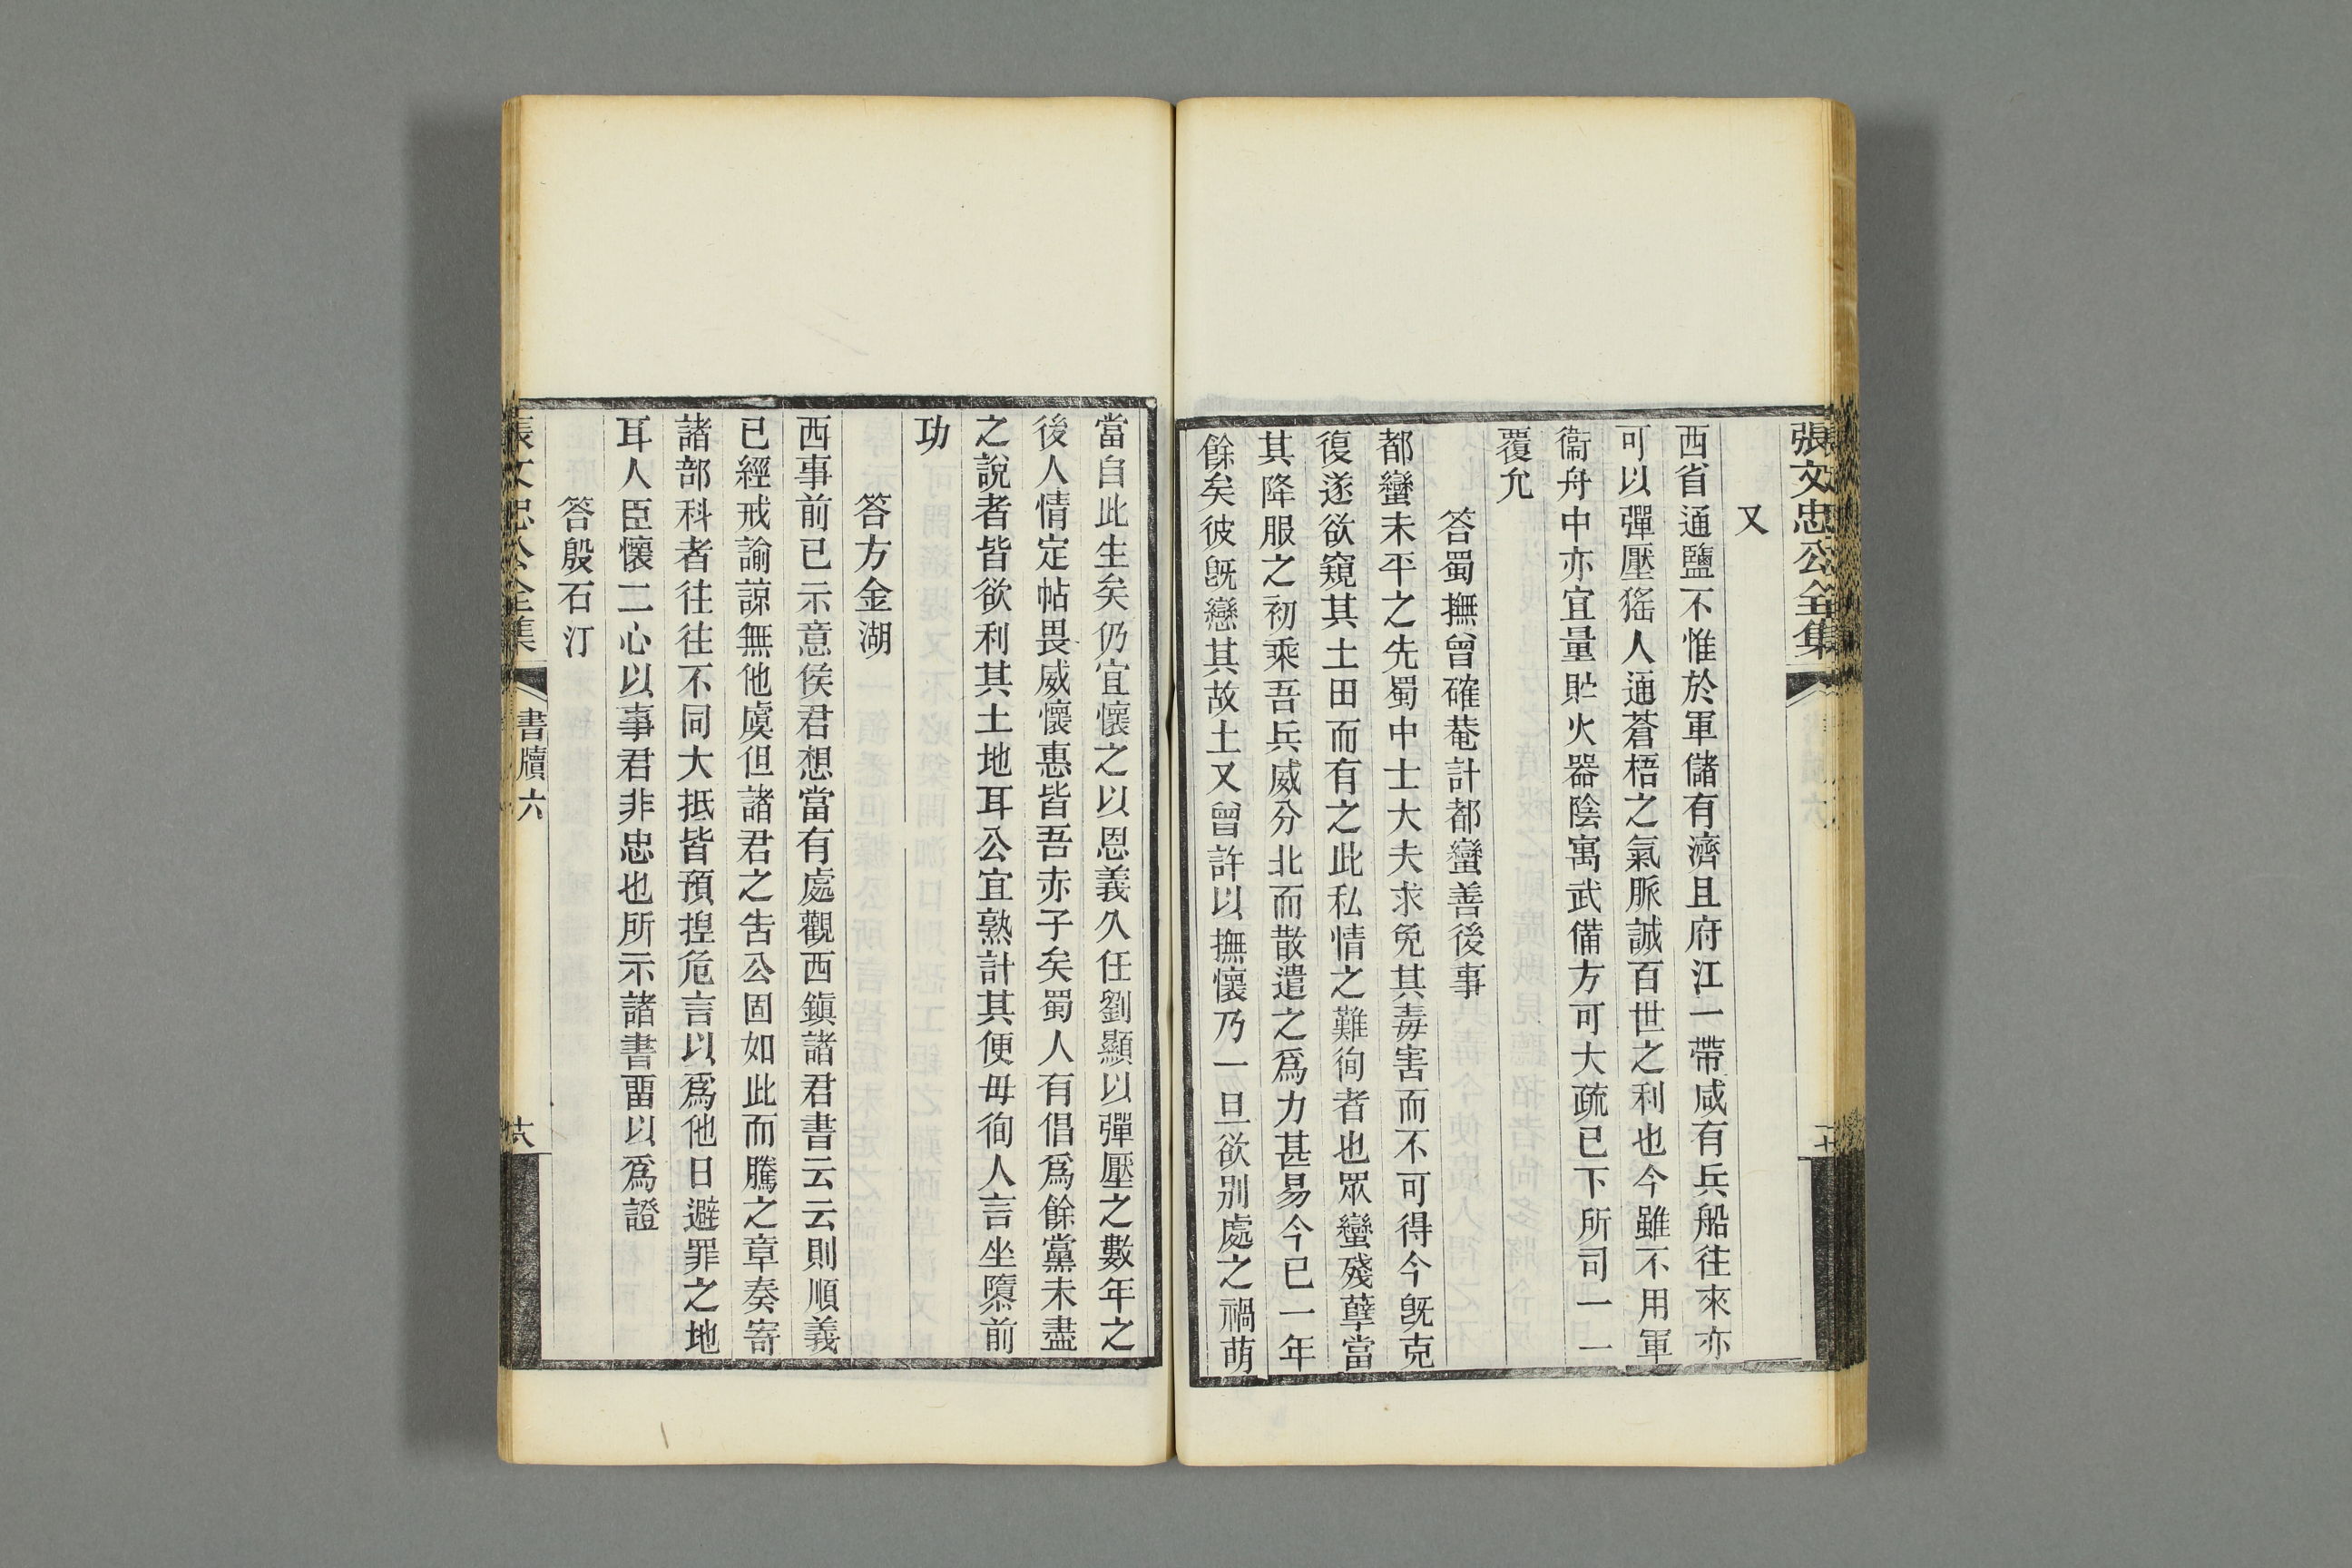 張文忠公全集
又
西省通鹽不惟於軍儲有濟且府江一帶咸有兵船往來亦
可以彈壓猺人通蒼梧之氣脈誠百世之利也今雖不用軍
衞舟中亦宜量貯火器陰寓武備方可大疏已下所司一一
覆允
答蜀撫曾確菴計都蠻善後事
都蠻未平之先蜀中士大夫求免其毒害而不可得今旣克
復遂欲窺其土田而有之此私情之難徇者也眾蠻殘孽當
其降服之初乘吾兵威分北而散遣之爲力甚易今已一年
餘矣彼旣戀其故土又曾許以撫懷乃一旦欲別處之禍萌
當自此生矣仍宜懷之以恩義久任劉顯以彈壓之數年之
後人情定帖畏威懷惠皆吾赤子矣蜀人有倡爲餘黨未盡
之說者皆欲利其土地耳公宜熟計其便毋徇人言坐隳前
功
答方金湖
西事前已示意俟君想當有處觀西鎭諸君書云云則順義
已經戒諭諒無他虞但諸君之告公固如此而騰之章奏寄
諸部科者往往不同大抵皆預揑危言以爲他日避罪之地
耳人臣懷二心以事君非忠也所示諸書畱以爲證
答殷石汀
張文忠公全集
書牘六
六